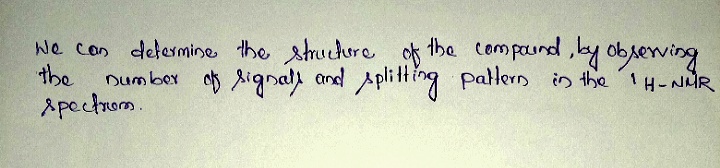 We can determine the structure of the compound, by observing
the number of signals and splitting pattern in the ¹H-NMR
spectrum.